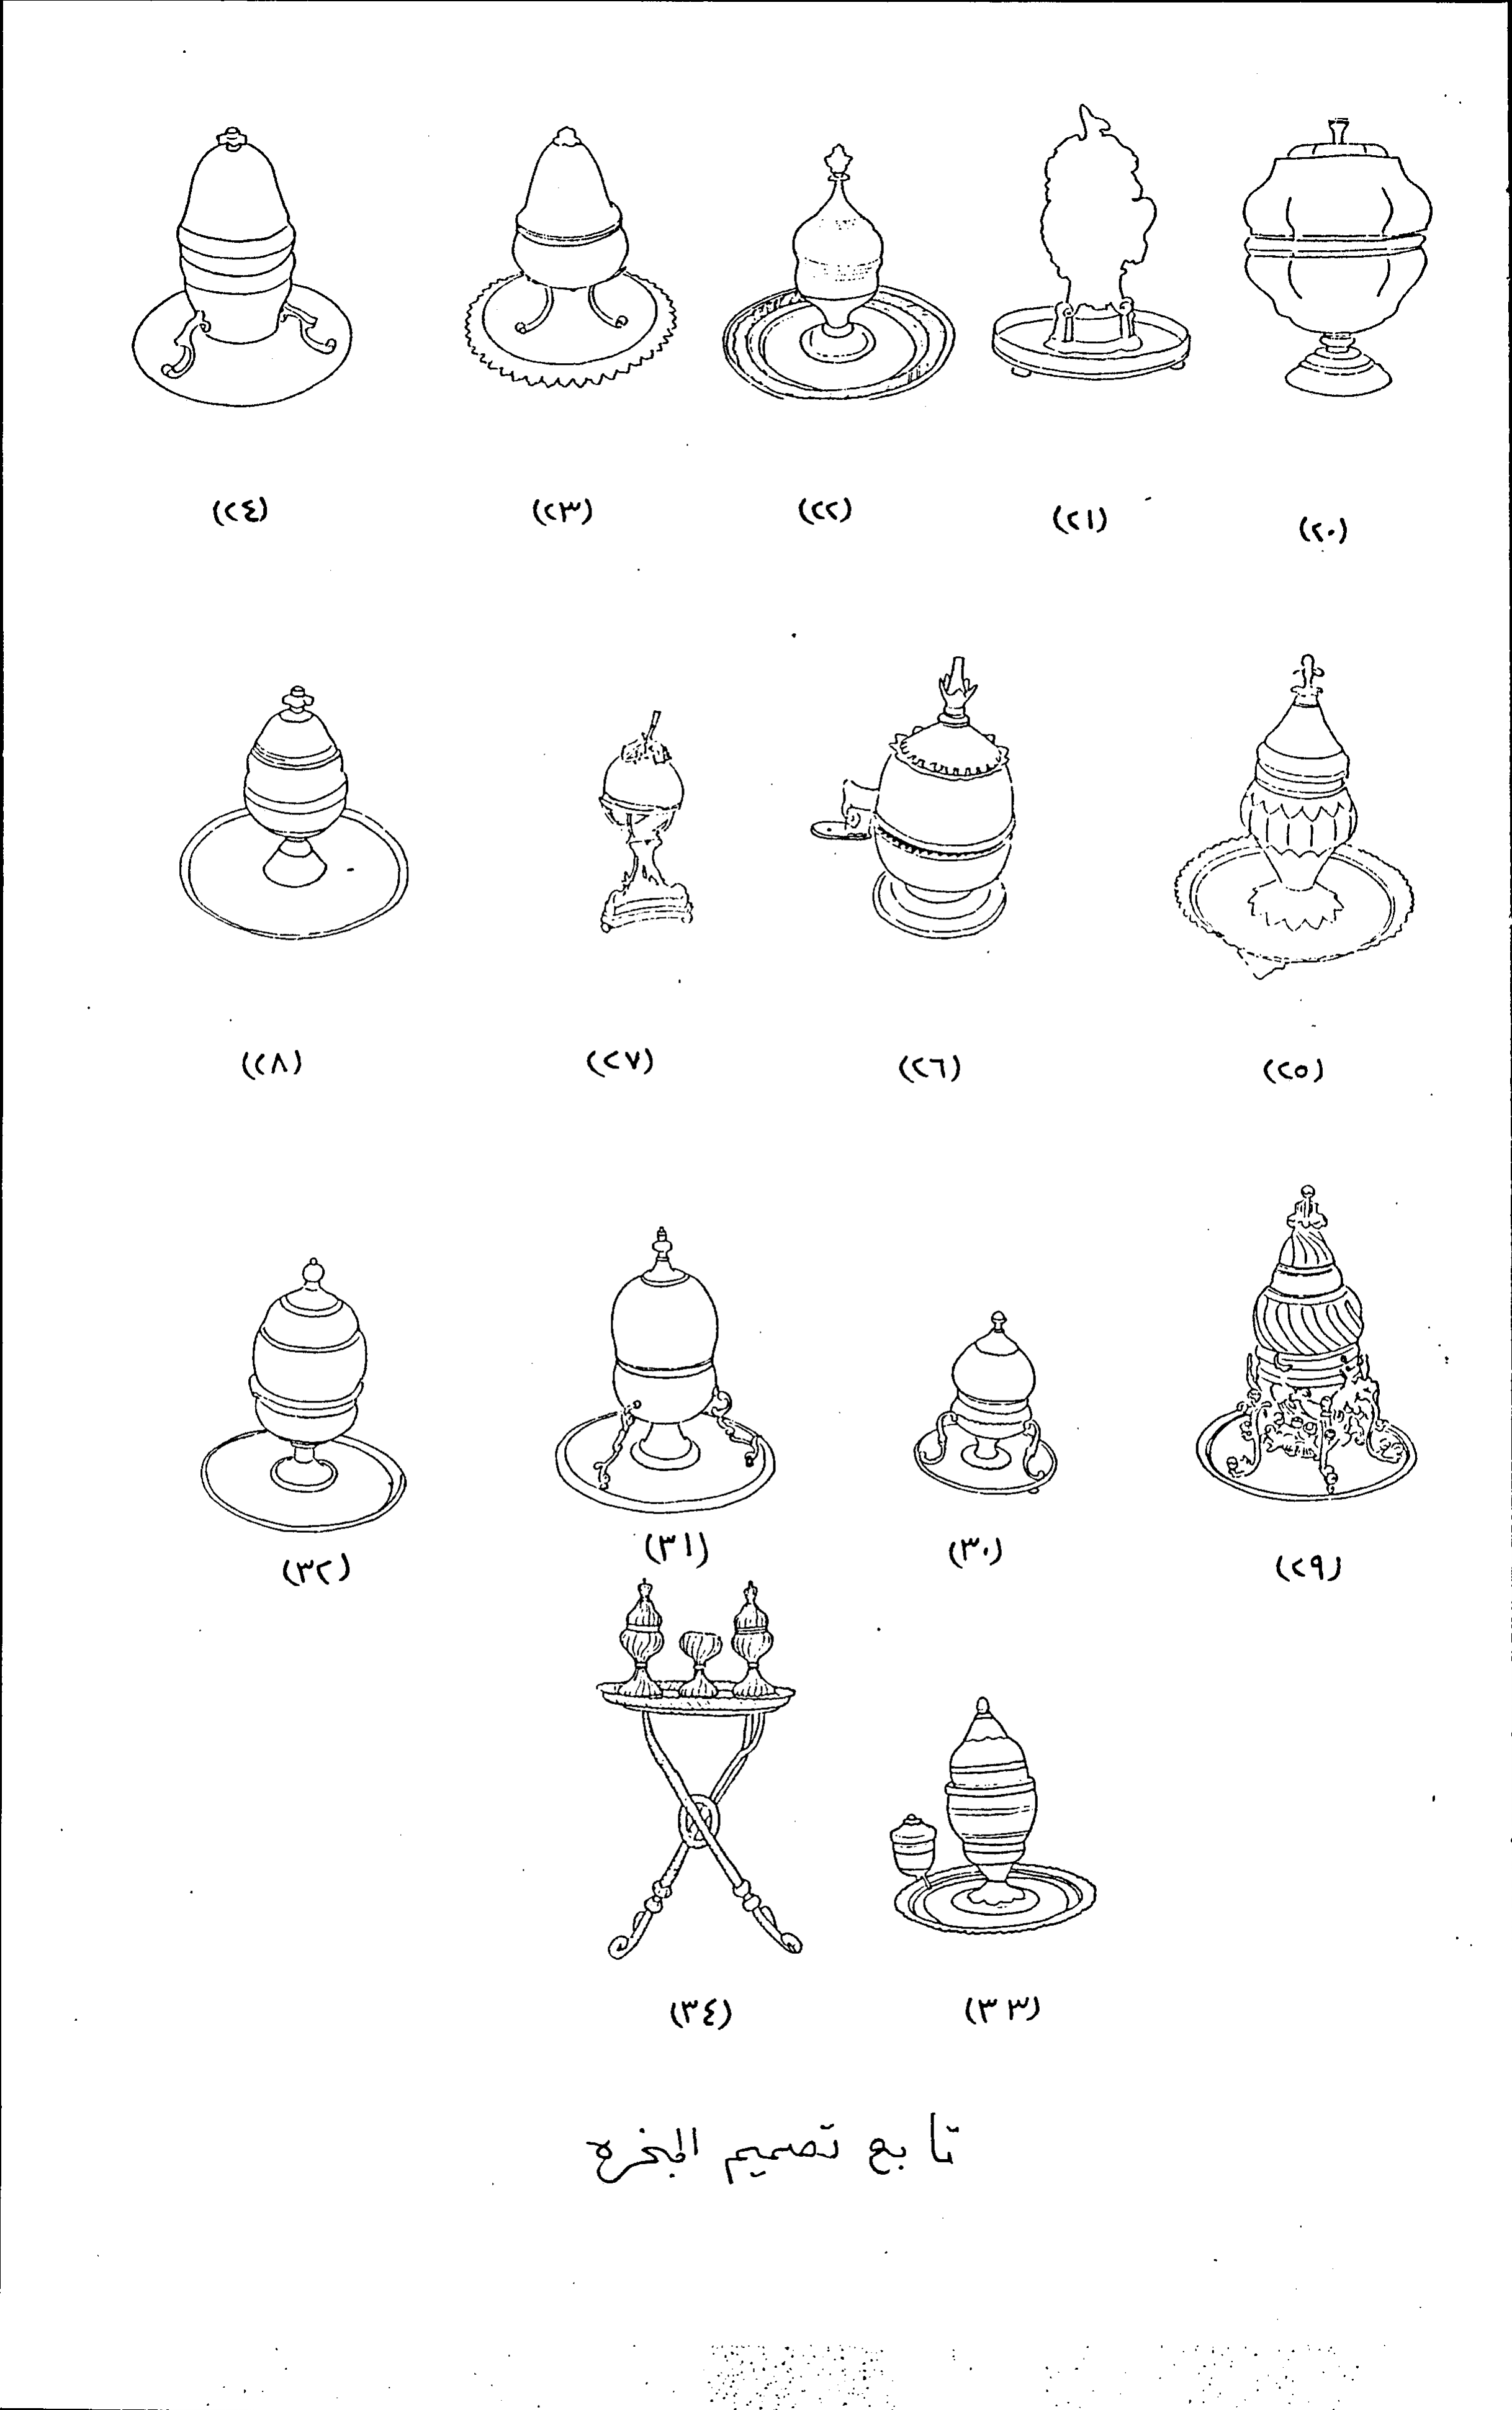 (٢٠) (٢١) (٢٢) (٢٣) (٢٤)
(٢٥) (٢٦) (٢٧) (٢٨)
(٢٩) (٣٠) (٣١) (٣٢)
(٣٣) (٣٤)
تابع تصميم المبخره